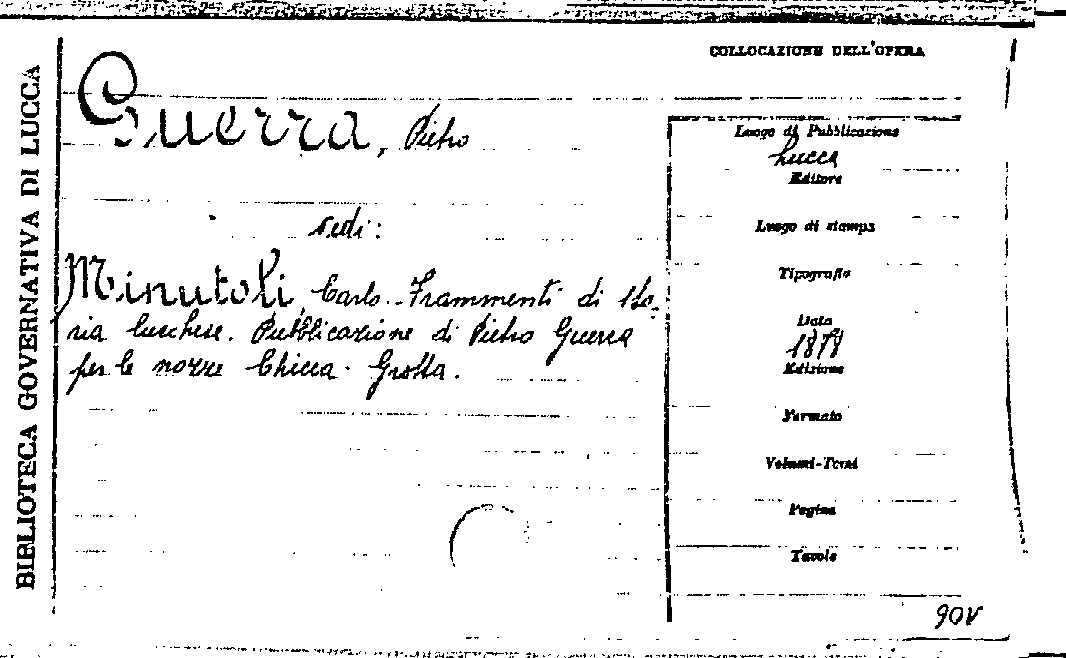 BIBLIOTECA GOVERNATIVA DI LUCCA
COLLOCAZIONE DELL'OPERA
Guerra, Pietro
vedi:
Minutoli, Carlo. Frammenti di sto-
ria lucchese. Pubblicazione di Pietro Guerra
per le nozze Chicca-Grotta.
Luogo di Pubblicazione
Lucca
Editore
Luogo di stampa
Tipografia
Data
1878
Edizione
Formato
Volumi-Tomi
Pagine
Tavole